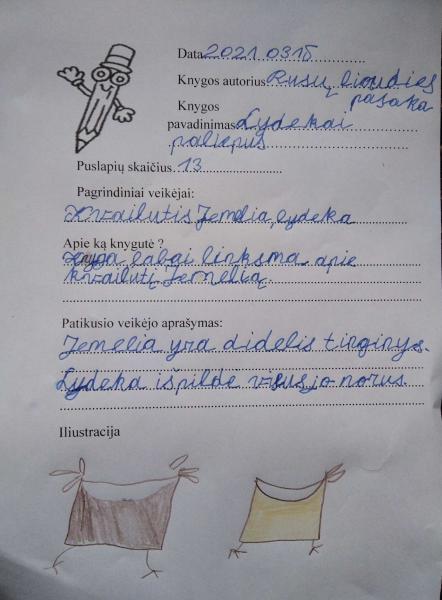 Data 2021 0315
Knygos autorius Rusų liaudies
pasaka
Knygos
pavadinimas Lydekai
paliepus
Puslapių skaičius 13
Pagrindiniai veikėjai:
Kvailutis Jemelia, lydeka
Apie ką knygutė ?
Knyga labai linksma apie
kvailutį Jemelią.
Patikusio veikėjo aprašymas:
Jemelia yra didelis tinginys.
Lydeka išpildė visus jo norus.
Iliustracija